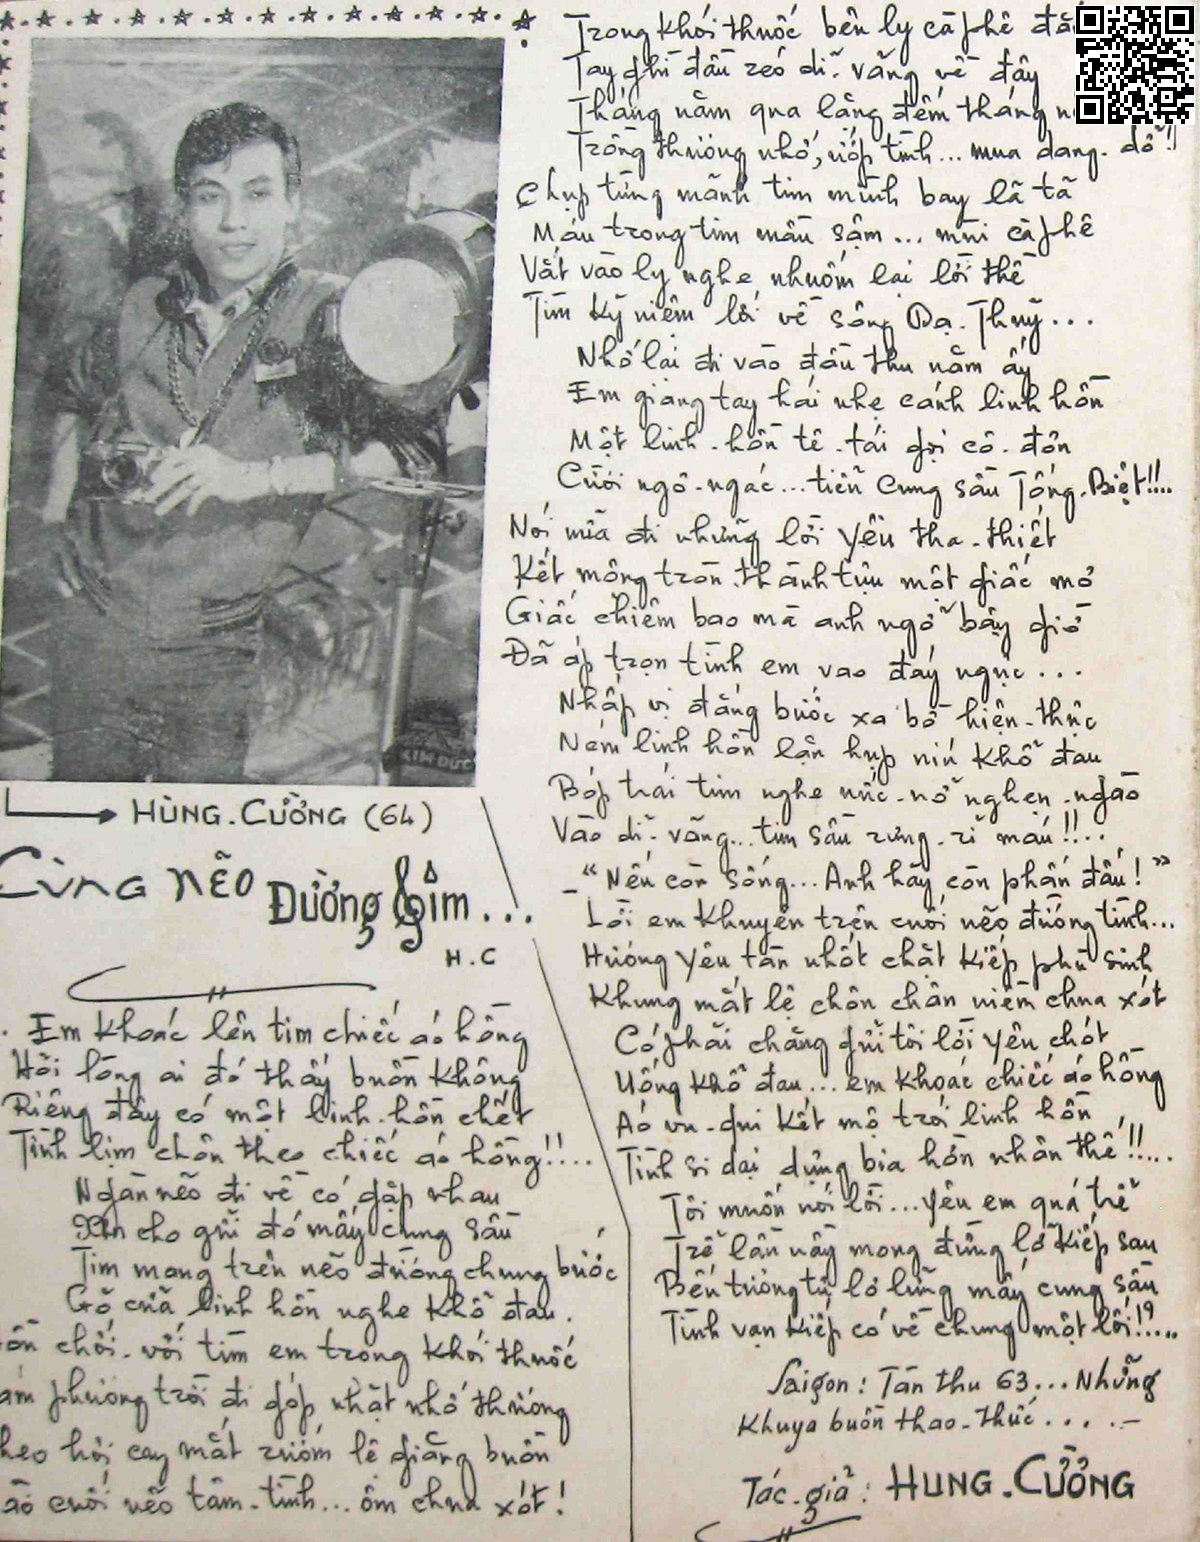 KIM ĐỨC
HÙNG. CƯỜNG (64)
CÙNG NẼO
ĐƯỜNG tim...
H.C
. Em khoác lên tim chiếc áo hồng
Hỏi lòng ai đó thấy buồn không
Riêng đây có một linh-hồn chết
Tình lịm chôn theo chiếc áo hồng!!...
Ngàn nẽo đi về có gặp nhau
Xin cho gửi đó mấy cung sầu
Tim mang trên nẽo đường chung bước
Gõ cửa linh hồn nghe khổ đau.
chới-với tìm em trong khói thuốc
phương trời đi góp nhặt nhớ thương
hơi cay mắt rướm lệ giăng buồn
cuối nẽo tâm-tình... ôm chua xót!
Trong khói thuốc bên ly cà phê
Tay ghì đầu réo dĩ-vãng về đây
Tháng năm qua lặng đếm tháng
Trồng thương nhớ, ướp tình... mưa dang-dở!
Chụp từng mảnh tim mình bay lã tã
Máu trong tim mầu sậm... mùi cà phê
Vắt vào ly nghe nhuốm lại lời thề
Tìm kỷ niệm lối về sông Dạ-Thuỷ...
Nhớ lại đi vào đầu thu năm ấy
Em giang tay hái nhẹ cánh linh hồn
Một linh-hồn tê-tái gọi cô-đơn
Cười ngô-ngác...tiển cung sầu Tống-Biệt!!..
Nói mữa đi những lời yêu tha-thiết
Kết mộng tròn thành tựu một giấc mơ
Giấc chiêm bao mà anh ngỡ bây giờ
Đã ấp trọn tình em vao đáy ngực...
Nhấp vị đắng bước xa bờ hiện-thực
Ném linh hồn lặn hụp níu khổ đau
Bóp trái tim nghe nức-nở nghẹn-ngào
Vào dĩ-vãng... tim sầu rưng-rỉ máu!!..
-"Nếu còn sống... Anh hãy còn phấn đấu!"
Lời em khuyên trên cuối nẽo đường tình...
Hương yêu tàn nhốt chặt kiếp phù sinh
Khung mắt lệ chôn chân niềm chua xót
Có phải chăng gửi tôi lời yêu chót
Uống khổ đau... em khoác chiếc áo hồng
Áo vu-qui kết mộ trói linh hồn
Tình si dại dựng bia hờn nhân thế!!...
Tôi muốn nói lời... yêu em quá trễ
Trễ lần này mong đừng lỡ kiếp sau
Bến tương tự lơ lửng mấy cung sầu
Tình vạn kiếp có về chung một lối!?...
Saigon: Tàn thu 63... Những
khuya buồn thao-thức.....-
Tác-giả: HÙNG-CƯỜNG